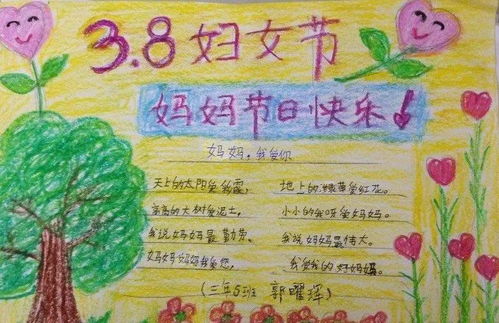 3.8妇女节
妈妈节日快乐!
妈妈,我爱你
天上的太阳爱彩霞, 地上的 爱红花。
高高的大树爱泥土, 小小的我呀爱妈妈。
我说妈妈最勤劳, 我说妈妈最伟大。
妈妈妈妈我爱您, 我爱我的好妈妈。
(三年6班 郭曜珲)